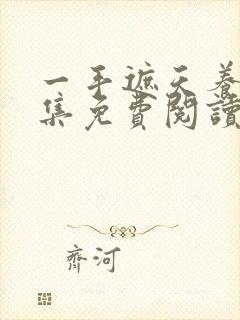 一手遮天養
集免費閱讀
齊河